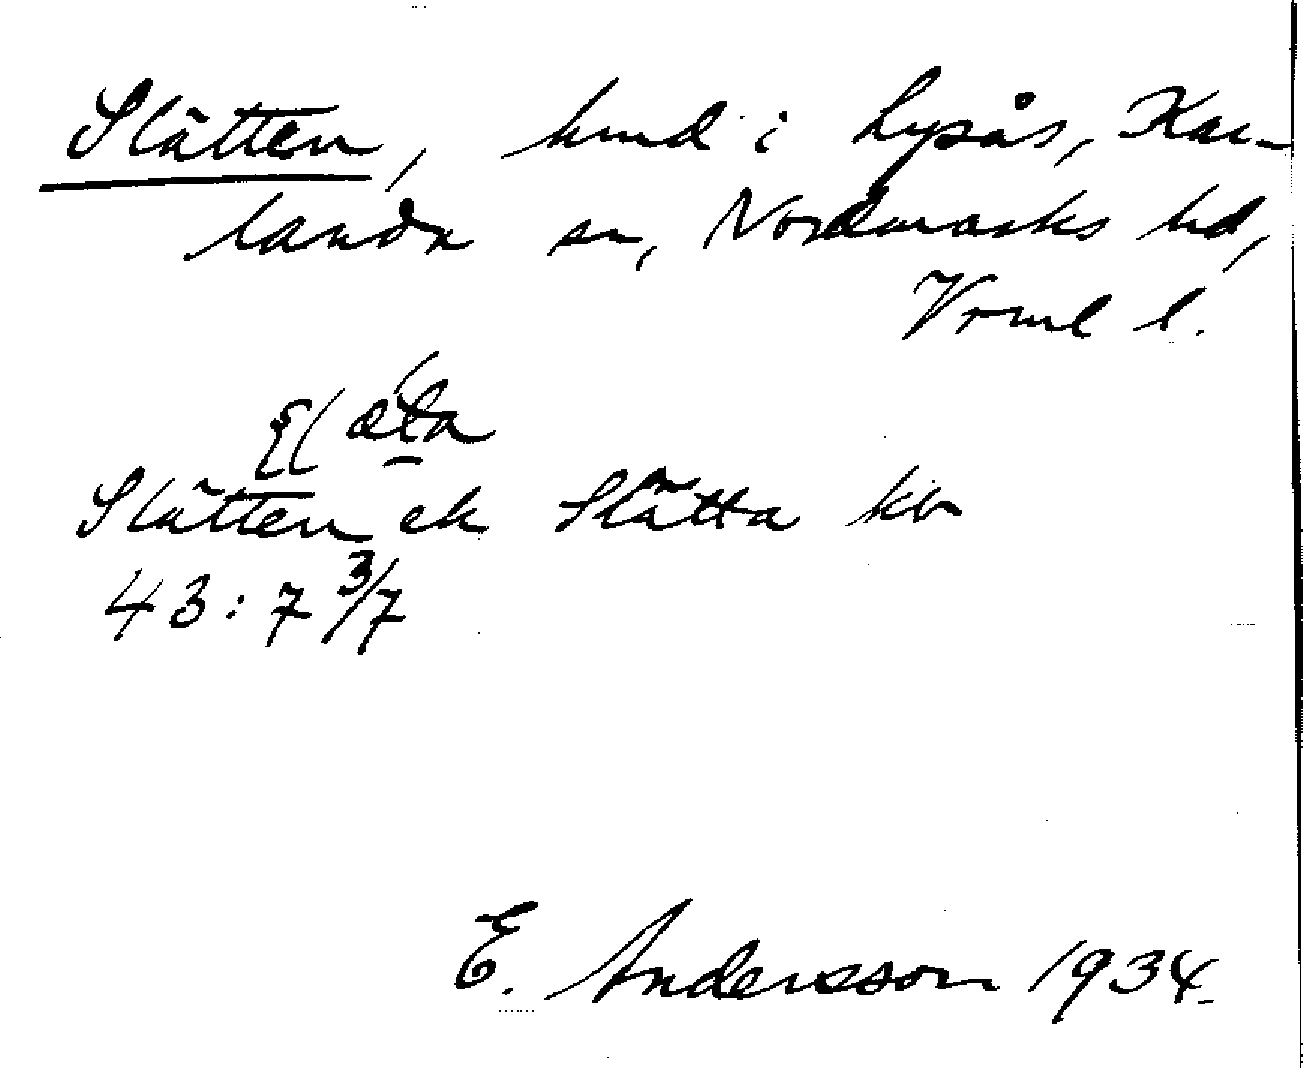 Slätten, hmd i Lysås, Kar-
landa sn, Nordmarks hd,
Vrml l.
Slätten ek Slätta kb
43:7 3/7
E. Andersson 1934.